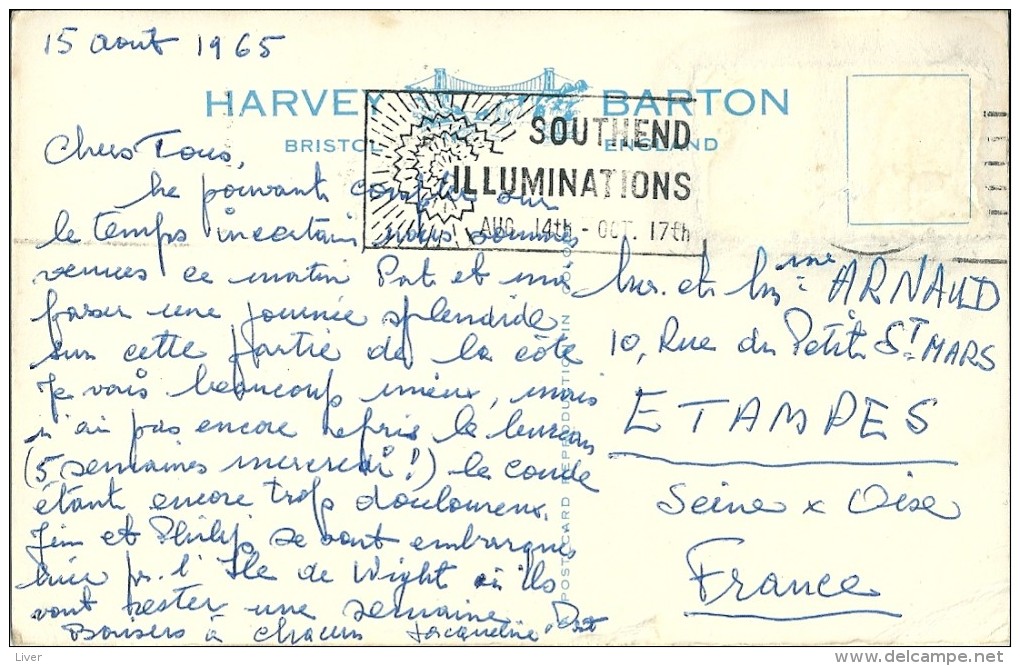 15 aout 1965
HARVEY BARTON
BRISTOL ENGLAND
SOUTHEND
ILLUMINATIONS
AUG. 14th - OCT. 17th
Chers Tous,
ne pouvant compter sur
le temps incertain, nous sommes
venues ce matin Pat et moi
passer une journée splendide
sur cette partie de la côte
Je vais beaucoup mieux, mais
n'ai pas encore repris le bureau
(5 semaines mercredi!) le coude
étant encore trop douloureux.
Jim et Philip se sont embarqués
hier pr. l'Ile de Wight où ils
vont rester une semaine.
Baisers à chacun Jacqueline. Pat
POSTCARD REPRODUCTION IN COLOUR
ARNAUD
10, Rue du Petit St. MARS
ETAMPES
Seine x Oise
France
Liver
delcampe.net